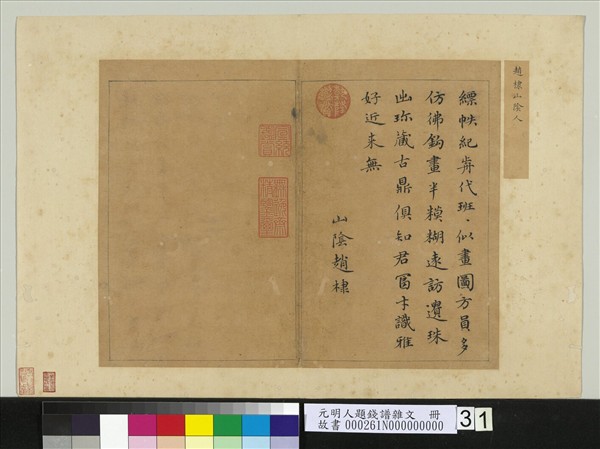 趙棣山陰人
縹帙紀前代班似畫圖方員多
仿彿鈎畫半模糊遠訪遺珠
出珎藏古鼎俱知君留十識雅
好近来無
山陰趙棣
元明人題錢譜雜文 冊
故書 000261N000000000
31